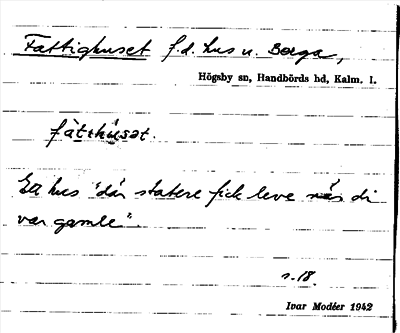 Fattighuset f.d. hus u. Berga,
Högsby sn, Handbörds hd, Kalm. l.
fàt:ihúsət.
Ett hus "där statare fick leve när di
var gamle".
s. 18.
Ivar Modéer 1942